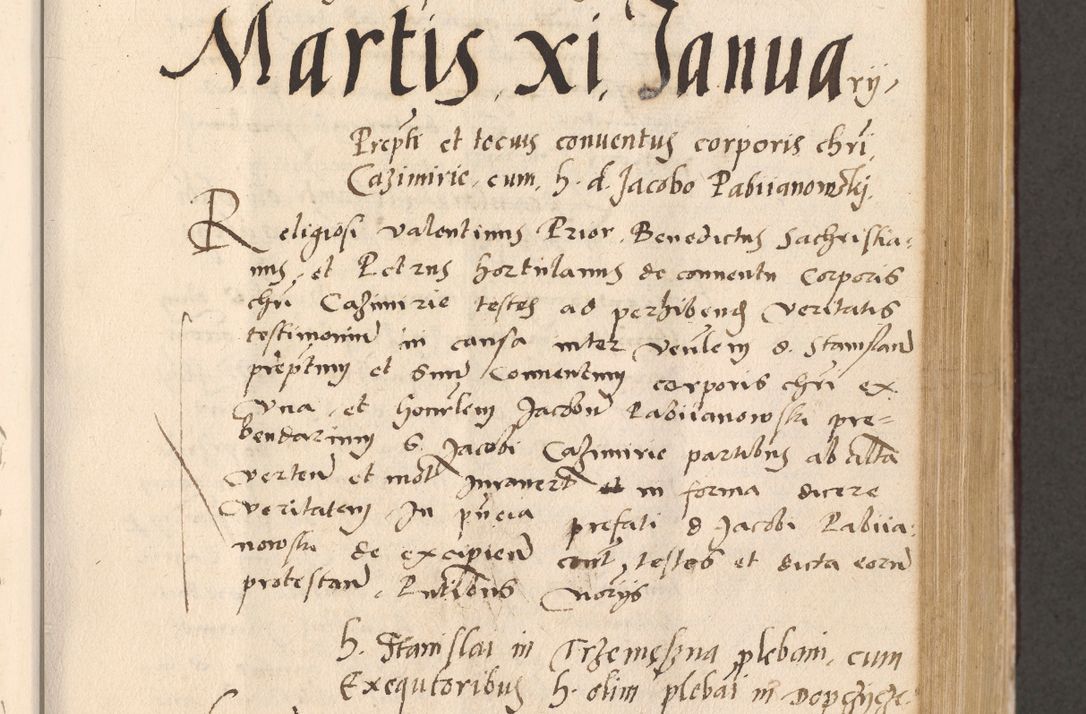 Martis xi Januarij
Prepti et tocius conventus corporis chri
Cazimirie cum h. d. Jacobo Pabiianowskj
Religiosi Valentinus Prior Benedictus Sacristia-
nus et Petrus hortulanus de conuentu Corporis
chri Cazimirie testes ad perhibend veritatis
testimoniu in causa inter venlem d. Stanislau
preptum et suum Conuentum corporis chri ex
vna et honrlem Jacobu Pabiianowski pre-
bendarium S. Jacobi Cazimirie partibus ab alta
verten et mot Jurauert in forma dicere
veritatem In pncia prefati d Jacobi Pabiia-
nowski de excipien cont testes et dicta eoru
protestan Pntibus
h. Stanislai in Trzemęszna plebani cum
Exequtoribus h. olim plebai in Dopczicze